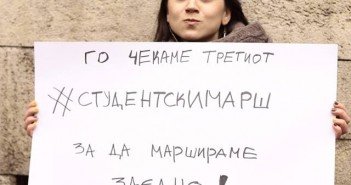 ГО ЧЕКАМЕ ТРЕТИОТ
#СТУДЕНТСКИМАРШ
ЗА ДА МАРШИРАМЕ
ЗАЕДНО!